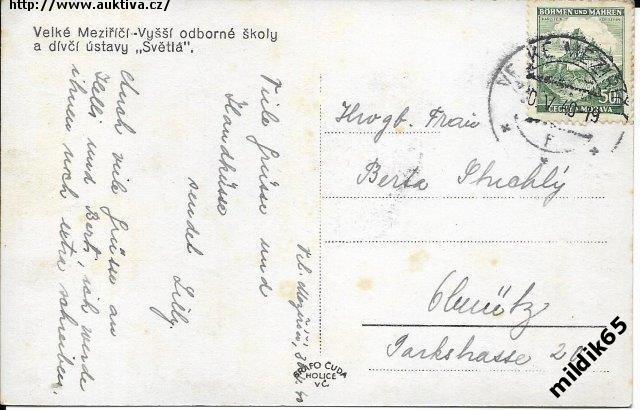 http://www.auktiva.cz/
Velké Meziříčí-Vyšší odborné školy
a dívčí ústavy „Světlá“.
Viele Grüsse und
Handküsse
sendet Lilly.
Auch viele Grüsse an
Helli und Berti, ich werde
ihnen noch extra schreiben.
Vel. Meziříčí,
GRAFO ČUDA
HOLICE
V Č.
BÖHMEN UND MÄHREN
50h
ČECHY A MORAVA
VELKÉ MEZIŘÍČÍ
V 40-19
f
Hvgb. Frau
Berta Stuchlý
Olmütz
Parkstrasse 26
mildik65